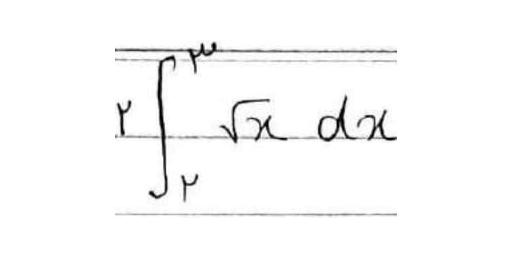 ۲ ∫_۲^۳ √x dx